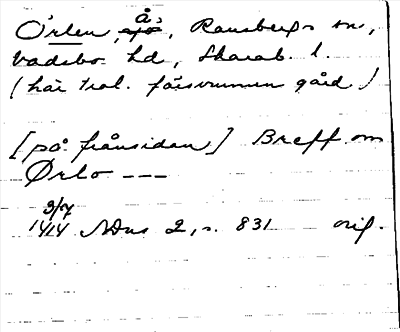 Örlen, å, Ransbergs sn,
Vadsbo hd, Skarab. l.
(här trol. försvunnen gård)
[på frånsidan] Breff om
Ørlo ---
9/7
1414 NDns 2, s. 831 orig.